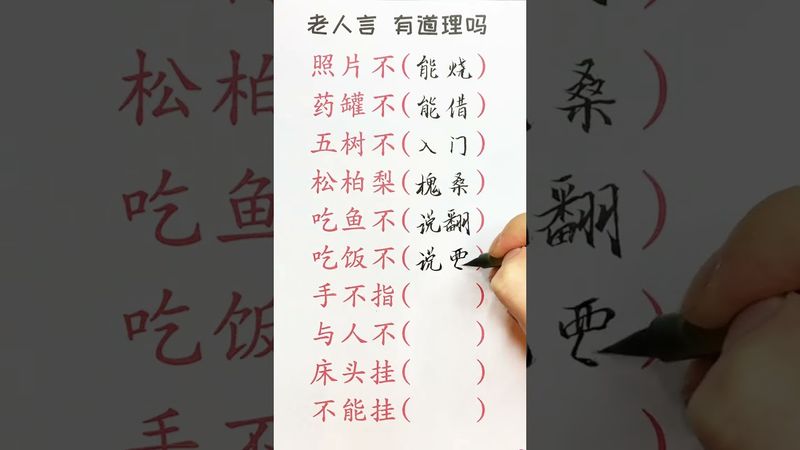 老人言 有道理吗
照片不(能烧)
药罐不(能借)
五树不(入门)
松柏梨(槐桑)
吃鱼不(说翻)
吃饭不(说 )
手不指( )
与人不( )
床头挂( )
不能挂( )